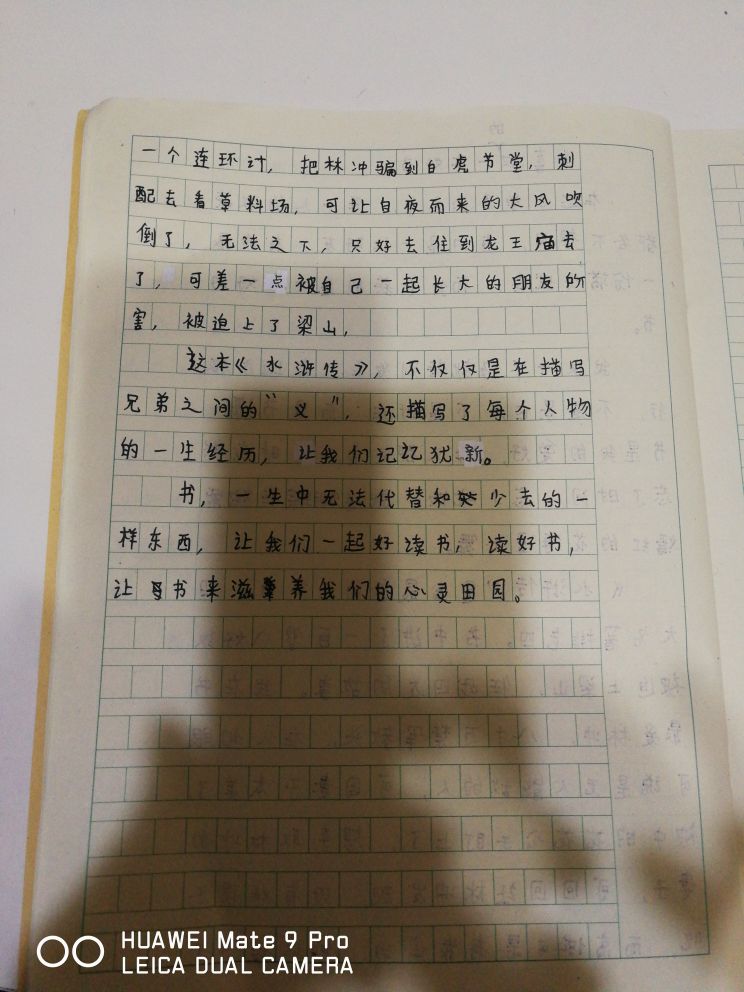 一个连环计，把林冲骗到白虎节堂，刺
配去看草料场，可让自夜而来的大风吹
倒了，无法之下，只好去住到龙王庙去
了，可差一点被自己一起长大的朋友所
害，被迫上了梁山，
这本《水浒传》，不仅仅是在描写
兄弟之间的“义”，还描写了每个人物
的一生经历，让我们记记犹新。
书，一生中无法代替和少去的一
样东西，让我们一起好读书，读好书，
让书来滋养我们的心灵田园。
HUAWEI Mate 9 Pro
LEICA DUAL CAMERA